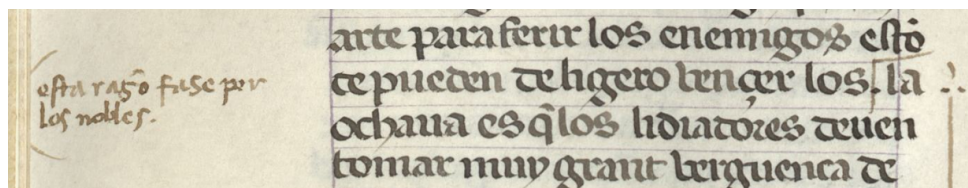 esta razõ fase por
los nobles.
arte para ferir los enemigos estõ
çe pueden de ligero bençer los. la
ochaua es q̃ los lidiadores deuen
tomar muy grant berguença de